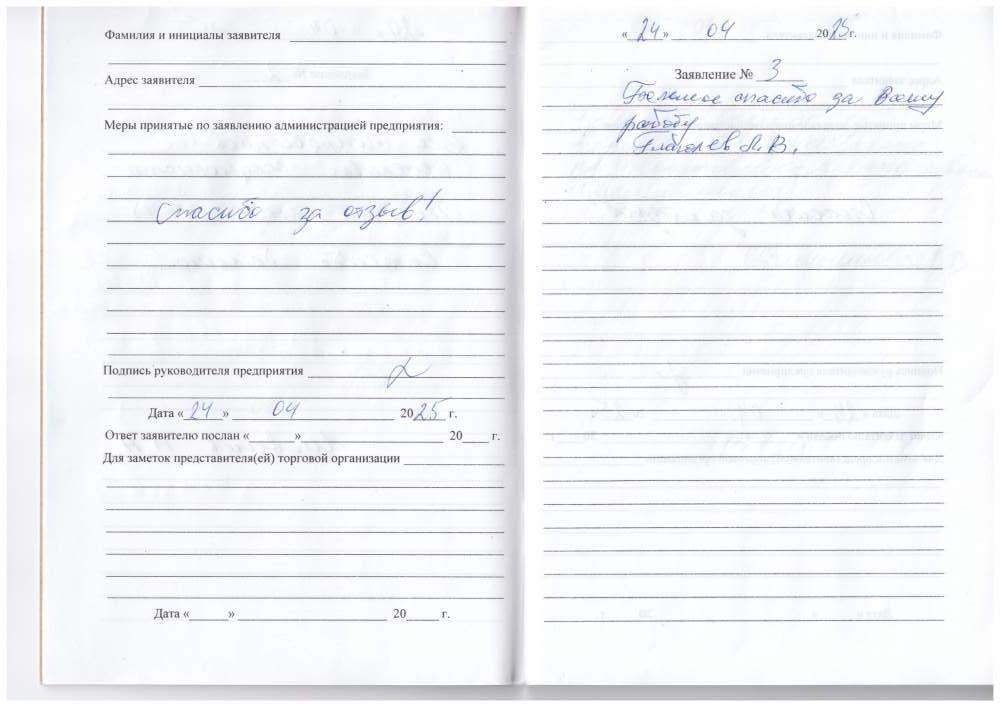 Фамилия и инициалы заявителя
Адрес заявителя
Меры принятые по заявлению администрацией предприятия:
Спасибо за отзыв!
Подпись руководителя предприятия
Дата « 24 » 04 2025 г.
Ответ заявителю послан « » 20 г.
Для заметок представителя(ей) торговой организации
Дата « » 20 г.
« 24 » 04 2025г.
Заявление № 3
спасибо за Вашу
работу
Л. В.